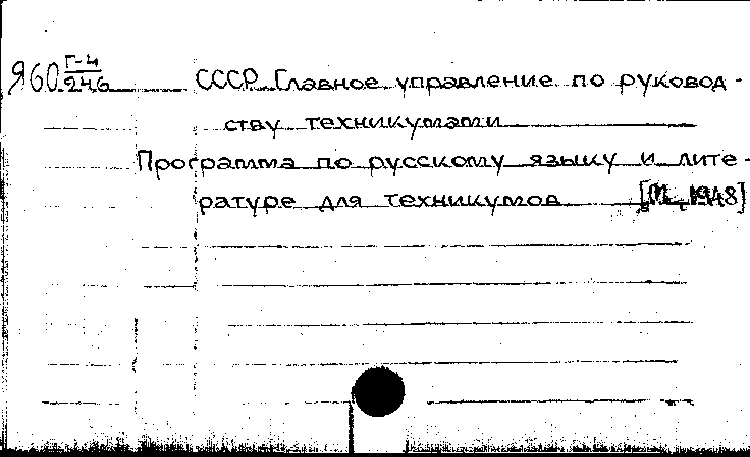 Я60 Г-4/246 СССР Главное управление по руковод-
ству техникумами
Программа по русскому языку и лите-
ратуре для техникумов [М., 1948]